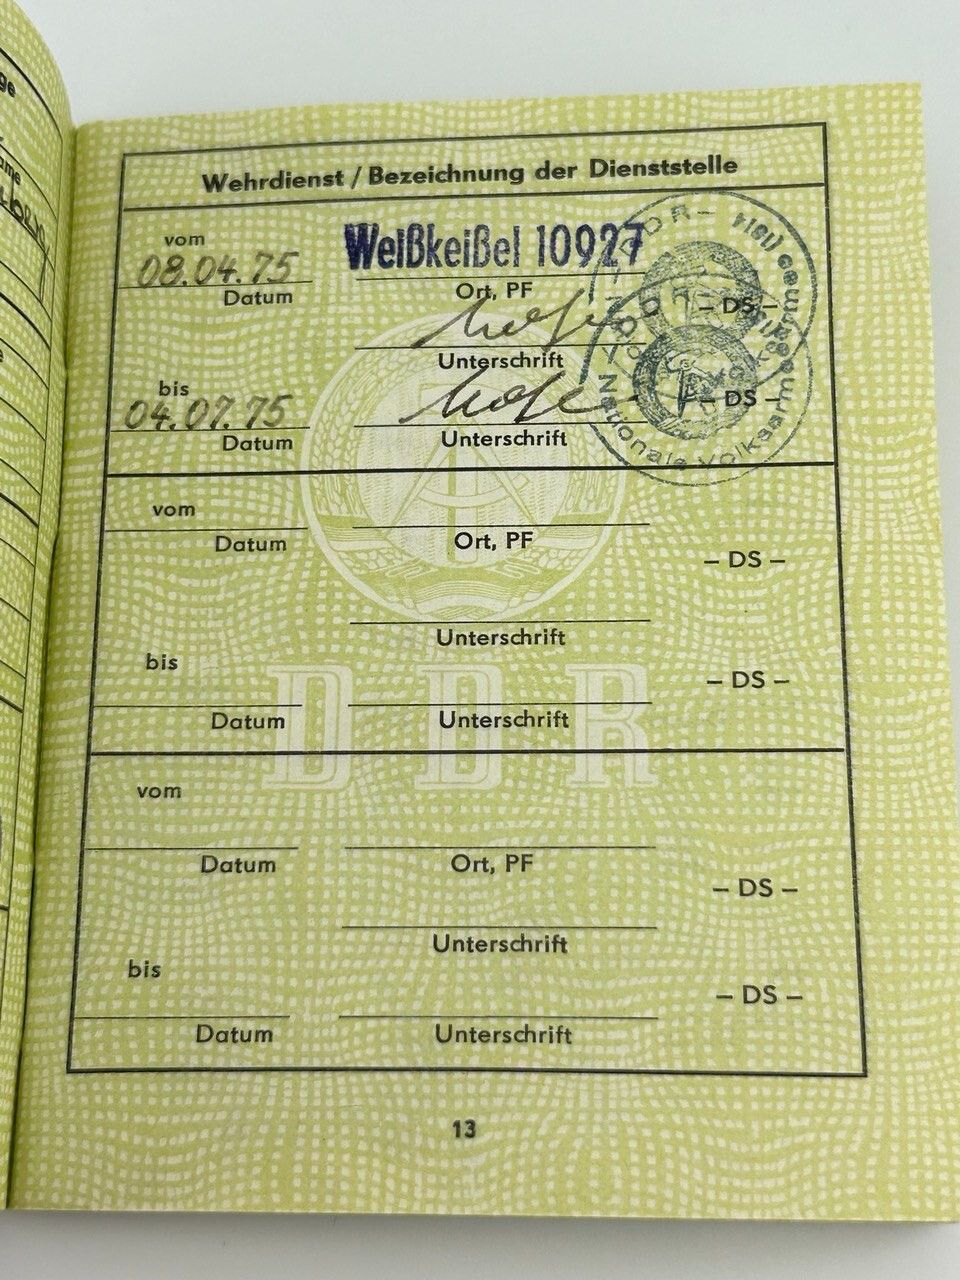 ge
ame
Wehrdienst / Bezeichnung der Dienststelle
vom
08.04.75
Datum
Weißkeißel 10927
Ort, PF
– DS –
Unterschrift
bis
04.07.75
Datum
Unterschrift
– DS –
DDR
Nationale Volksarmee
vom
Datum
Ort, PF
– DS –
Unterschrift
bis
Datum
Unterschrift
– DS –
DDR
vom
Datum
Ort, PF
– DS –
Unterschrift
bis
Datum
Unterschrift
– DS –
13